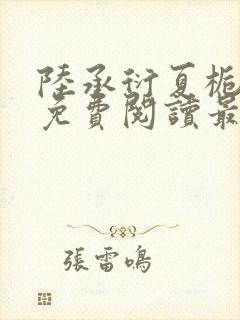 陸承衍夏梔
免費閱讀最
張雷鳴